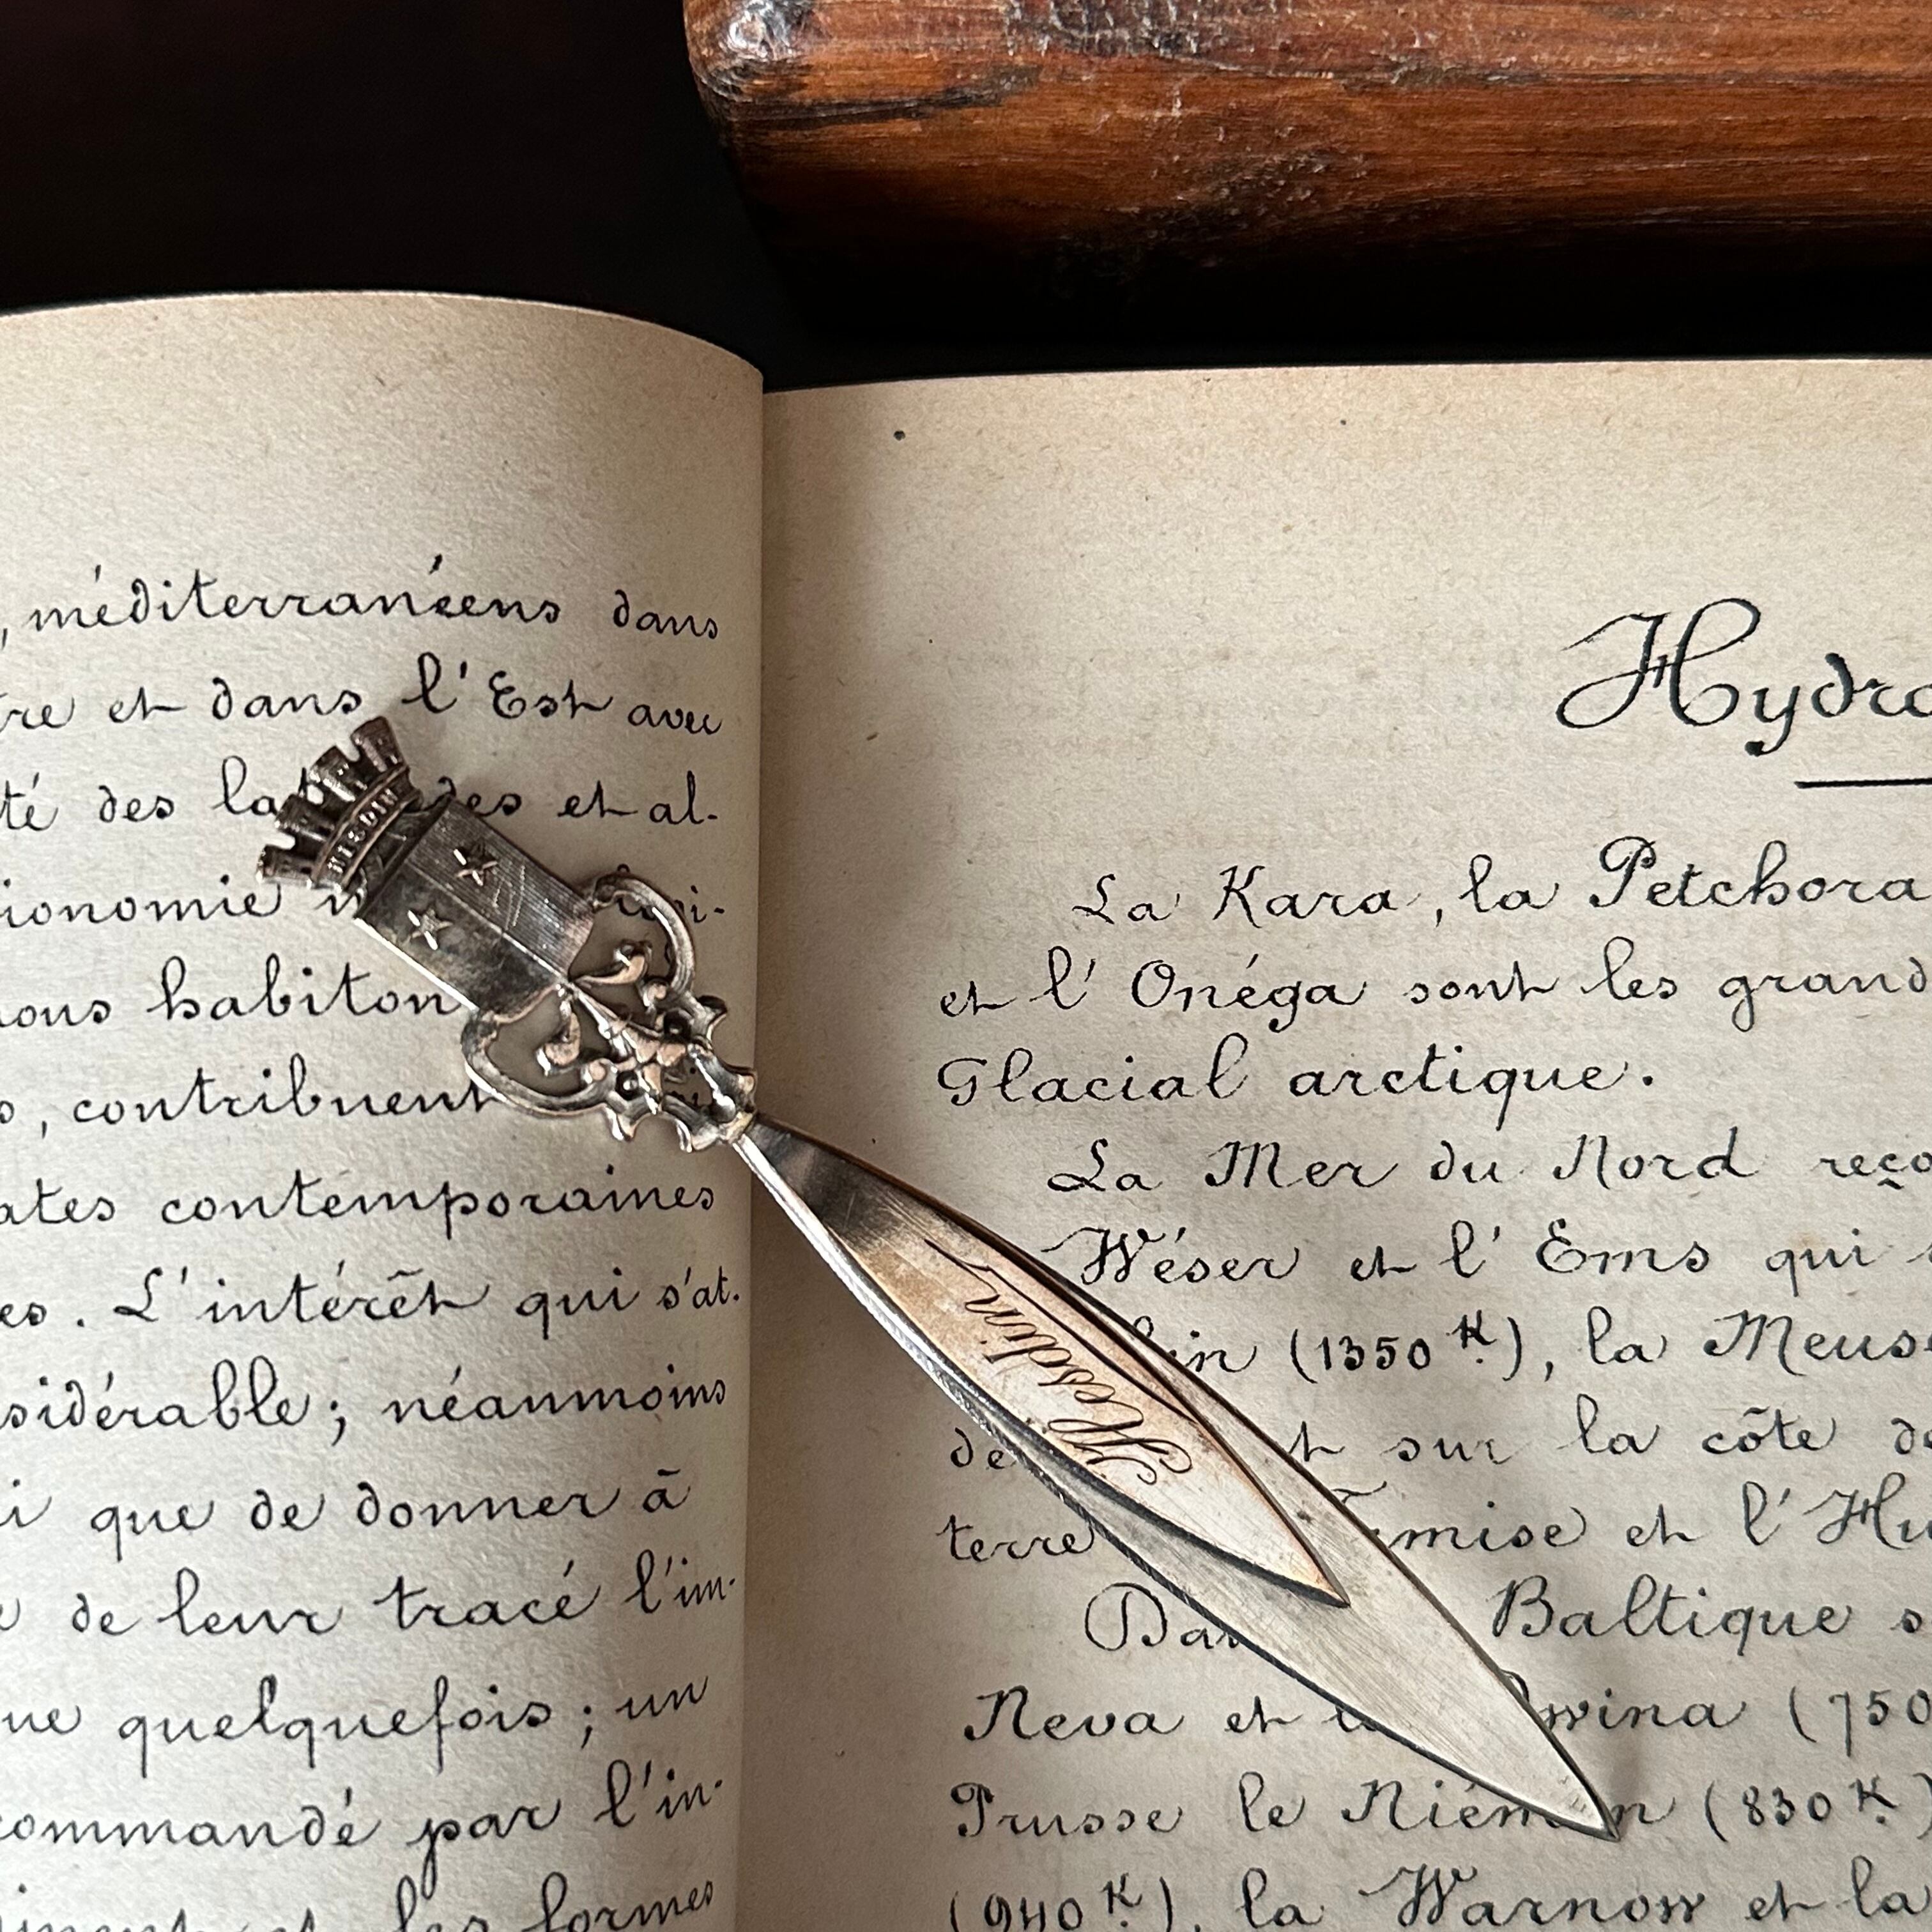 méditerranéens dans
et dans l'Est avec
té des et al-
ionomie
nous habiton
, contribuent
contemporaines
es. L'intérêt qui s'at-
sidérable; néanmoins
i que de donner à
de leur tracé l'im-
que quelquefois; un
commandé par l'in-
et les formes
HESDIN
Hesdin
Hydro
La Kara, la Petchora
et l'Onéga sont les grand
Glacial arctique.
La Mer du Nord reço
Wéser et l'Ems qui
in (1350 K.), la Meuse
de sur la côte de
terre mise et l'Hu
Baltique s
Neva et wina (750
Prusse le Niémen (830 K.)
(940 K.), la Warnow et la